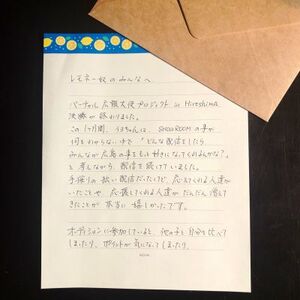 レモネー奴のみんなへ
バーチャル広報大使プロジェクト in HIROSHIMA
決勝が終わりました。
この1ヶ月間、うさちゃんは、SHOWROOMの事が
何もわからない中で「どんな配信をしたら
みんなが広島の事をもっと好きになってくれるんかな?」
と考えながら、配信を続けていました。
手探りの拙い配信だったけど、応えてくれる人達が
いたことや、応援してくれる人達がだんだん増えて
きたことが本当に嬉しかったです。
オーディションに参加していると、他の子と自分を比べて
しまったり、ポイントが気になってしまったり、